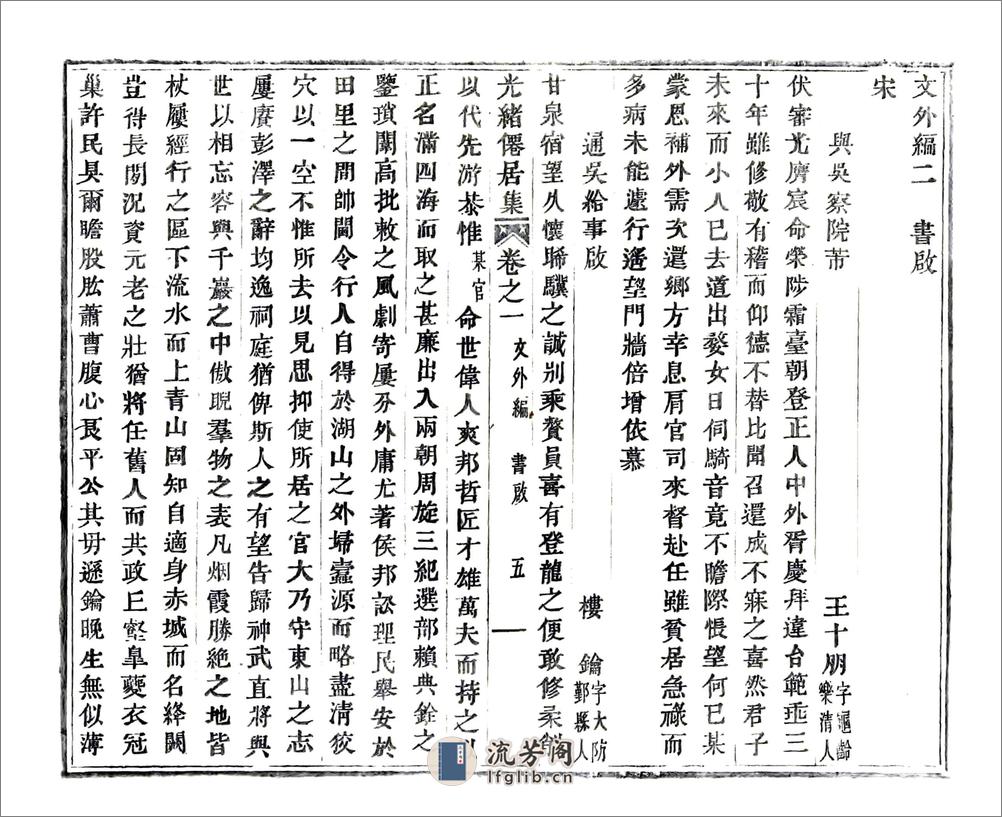 文外編二　書啟
宋
與吳察院芾　王十朋字龜齡樂清人
伏審光膺宸命榮陟霜臺朝登正人中外胥慶拜違台範垂三
十年雖修敬有稽而仰德不替比聞召還成不寐之喜然君子
未來而小人已去道出婺女日伺騎音竟不瞻際悵望何已某
蒙恩補外需次還鄉方幸息肩官司來督赴任雖貧居急祿而
多病未能遽行遙望門牆倍增依慕
通吳給事啟　樓　鑰字大防鄞縣人
甘泉宿望久懷睎驥之誠別乘贅員喜有登龍之便敢修
光緒僊居集　卷之一　文外編　書啟　五
以代先游恭惟某官　命世偉人爽邦哲匠才雄萬夫而持之以
正名滿四海而取之甚廉出入兩朝周旋三紀選部賴典銓之
鑒瑣闈高批敕之風劇寄屢分外庸尤著侯邦訟理民舉安於
田里之間帥閫令行人自得於湖山之外掃蠹源而略盡清狡
穴以一空不惟所去以見思抑使所居之官大乃守東山之志
屢賡彭澤之辭均逸祠庭猶俾斯人之有望告歸神武直將與
世以相忘容與千巖之中傲睨羣物之表凡烟霞勝絶之地皆
杖屨經行之區下流水而上青山固知自適身赤城而名絳闕
豈得長閒況資元老之壯猶將任舊人而共政丘壑臯夔衣冠
巢許民具爾瞻股肱蕭曹腹心良平公其毋遜鑰晚生無似薄
流芳阁
lfglib.cn